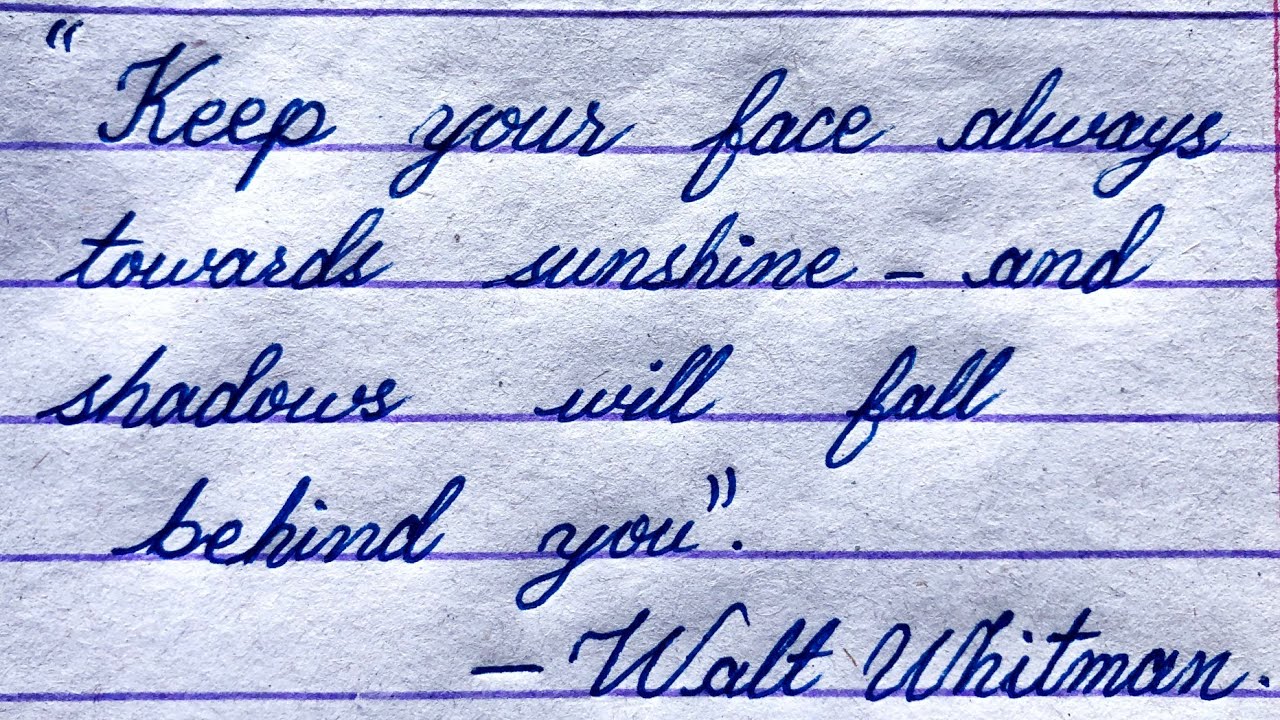 "Keep your face always
towards sunshine - and
shadows will fall
behind you".
- Walt Whitman.